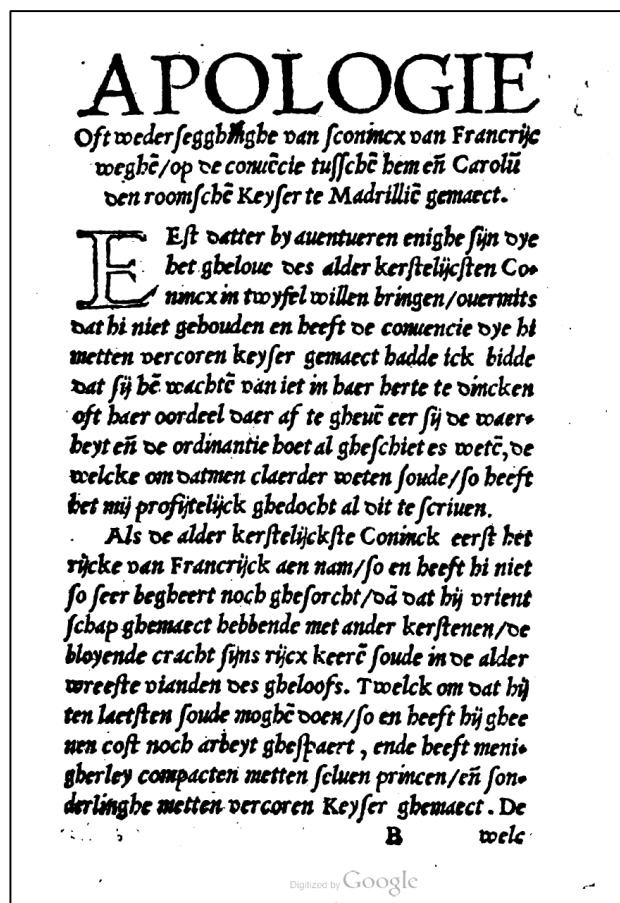 APOLOGIE
Oft wedersegghinghe van sconincx van Francrijc
weghē/op de conuēcie tusschē hem eñ Carolū
den roomschē Keyser te Madrillië gemaect.
ESt datter by auentueren enighe sijn dye
het gheloue des alder kerstelijcsten Co-
nincx in twyfel willen bringen/ouermits
dat hi niet gehouden en heeft de conuencie dye hi
metten vercoren keyser gemaect hadde ick bidde
dat sij hē wachtē van iet in haer herte te dincken
oft haer oordeel daer af te gheuē eer sij de waer-
heyt eñ de ordinantie hoet al gheschiet es wetē, de
welcke om datmen claerder weten soude/so heeft
het mij profijtelijck ghedocht al dit te scriuen.
Als de alder kerstelijckste Coninck eerst het
rijcke van Francrijck aen nam/so en heeft hi niet
so seer begheert noch ghesorcht/dā dat hij vrient
schap ghemaect hebbende met ander kerstenen/de
bloyende cracht sijns rijcx keerē soude in de alder
wreeste vianden des gheloofs. Twelck om dat hij
ten laetsten soude moghē doen/so en heeft hij ghee
nen cost noch arbeyt ghespaert, ende heeft meni-
gherley compacten metten seluen princen/eñ son-
derlinghe metten vercoren Keyser ghemaect. De
B welc
Digitized by Google